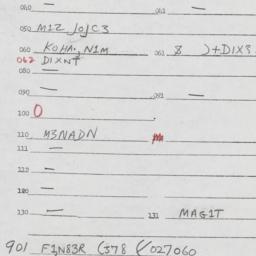 040 — 041 —
050 M1Z JOJC3
060 KOHA., N1M 061 8 )+DIX3
062 DIXNT
080 —
090 — 091 —
100 O
110 M3NADN
111 —
119 —
120 —
130 — 131 MAG1T
901 F1N83R (J78 027060